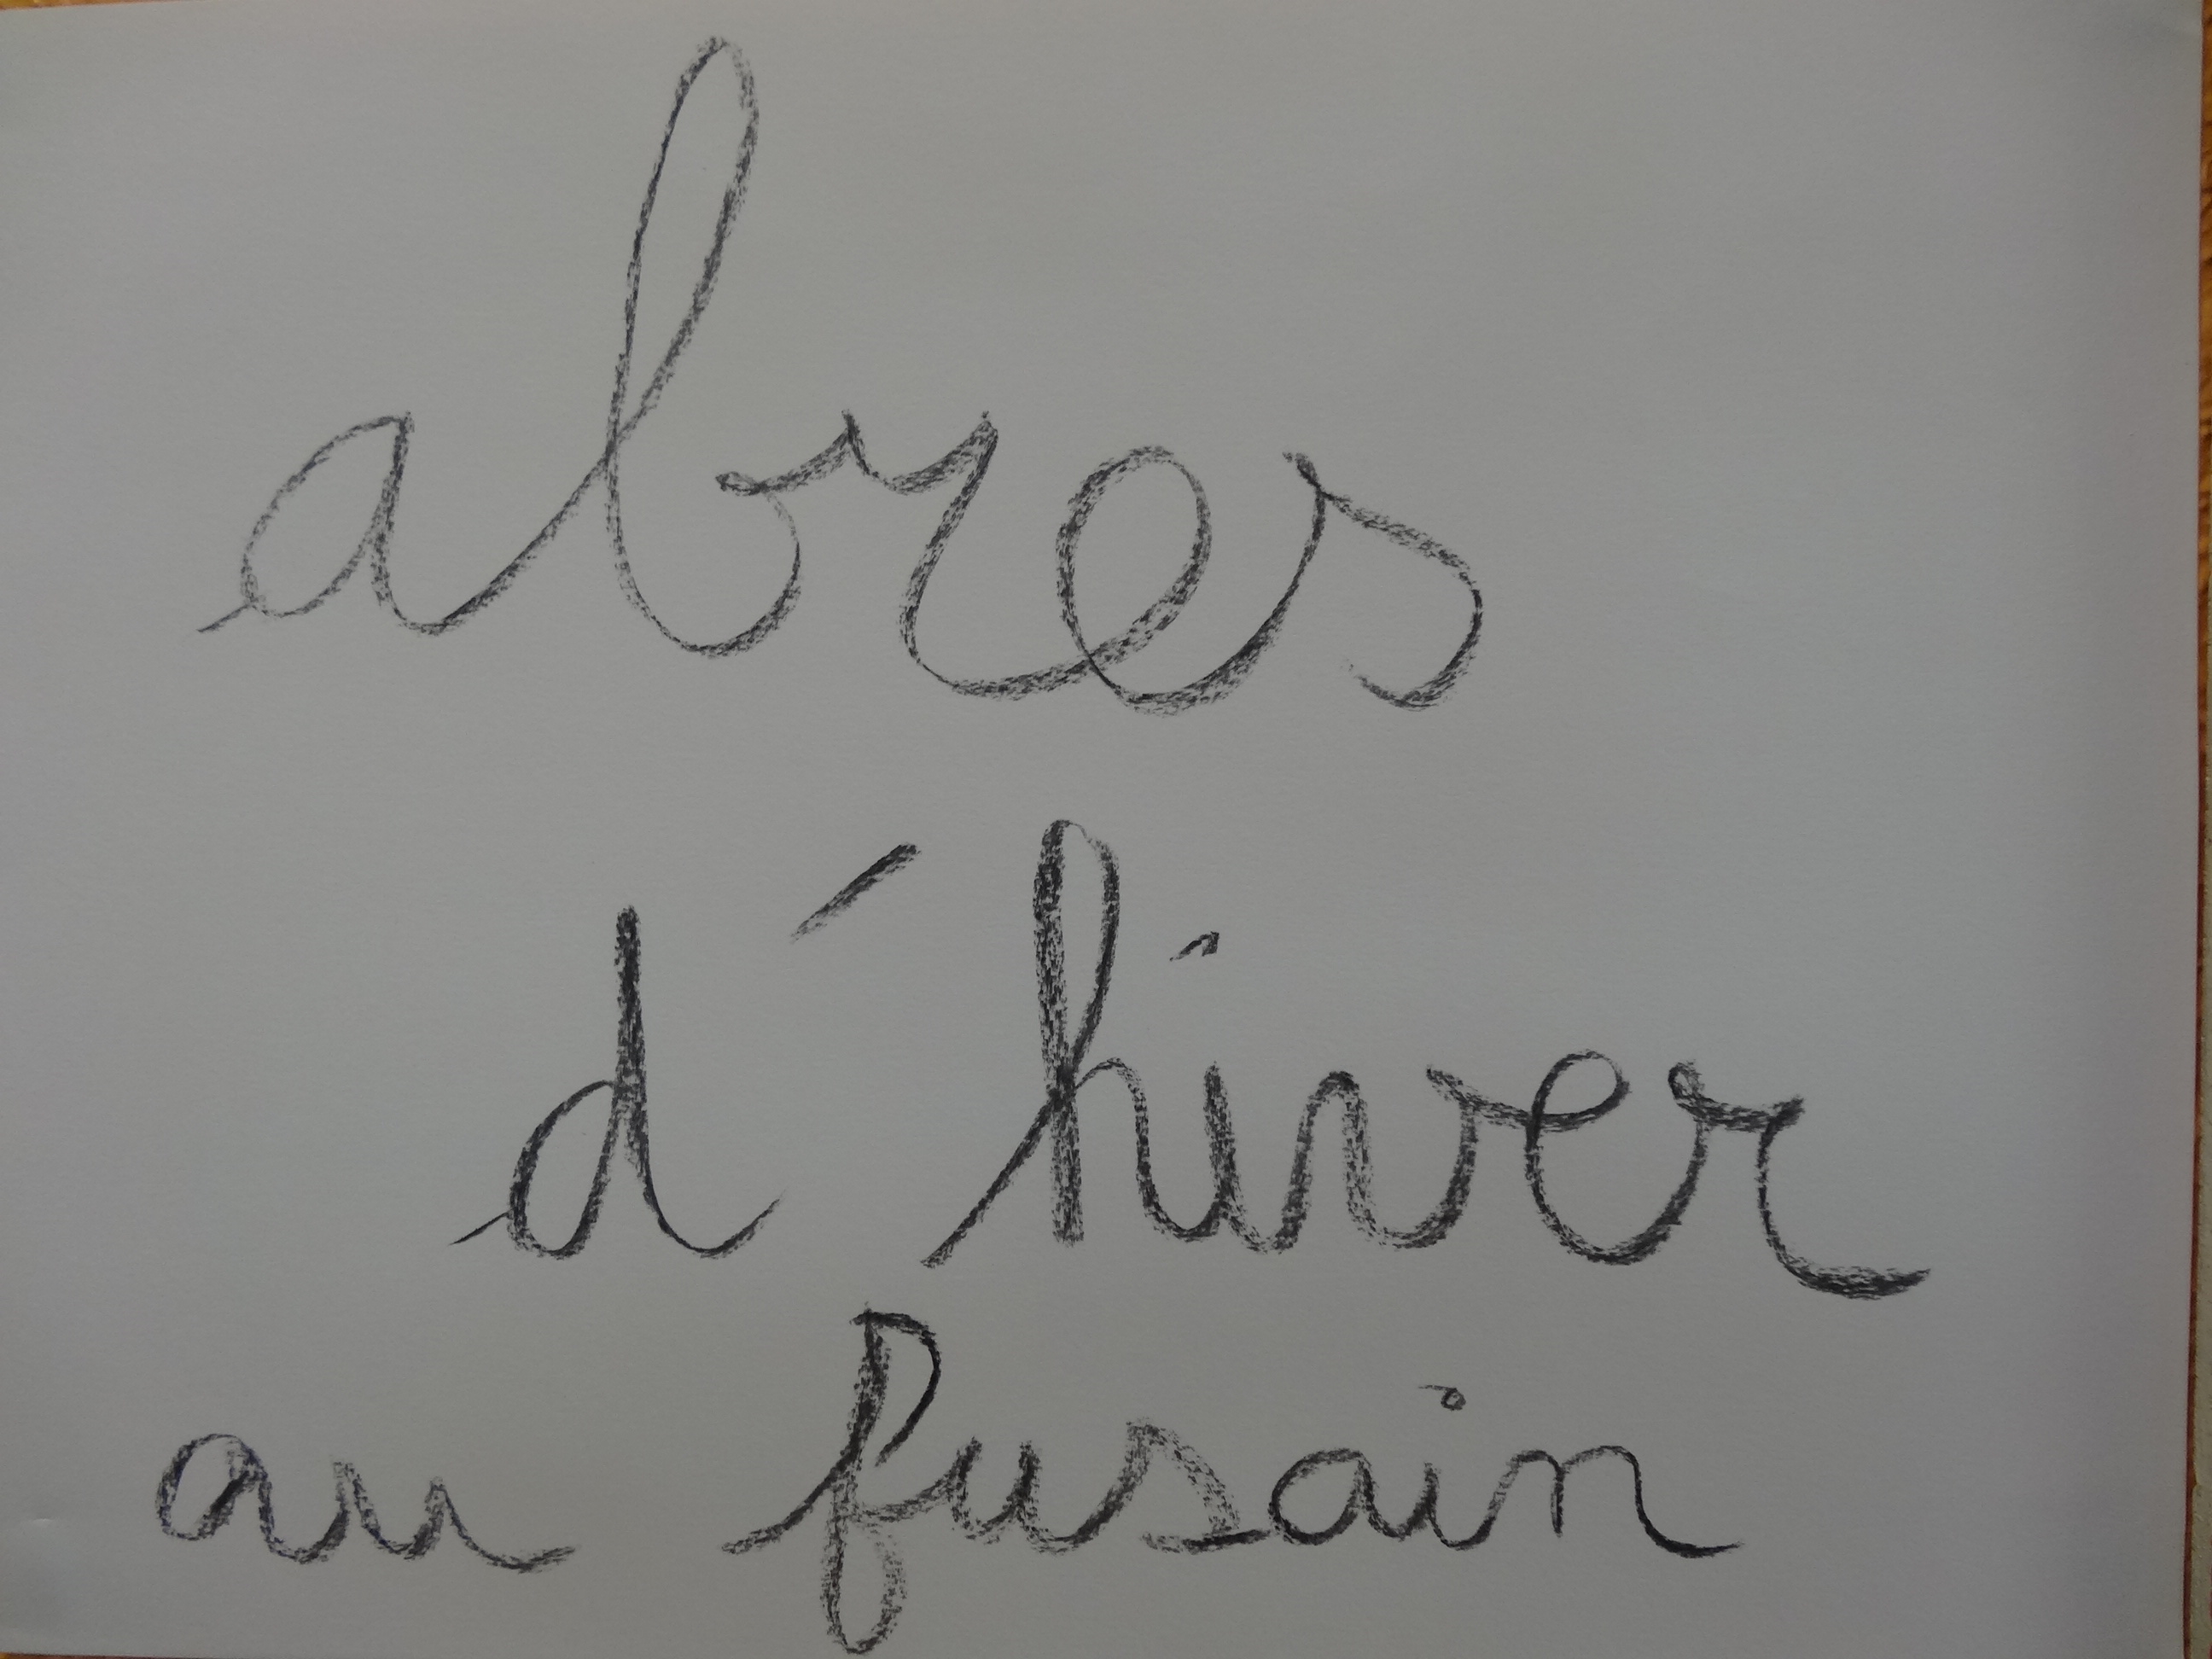 abres
d'hiver
au fusain